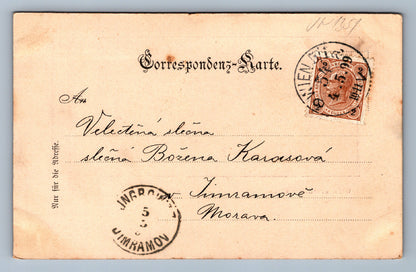 Correspondenz-Karte.
WIEN
4.5.99
An
Velectěná slečna
slečna Božena Karasová
v Jimramově
Morava.
Nur für die Adresse.
INGROWITZ
5
5
JIMRAMOV